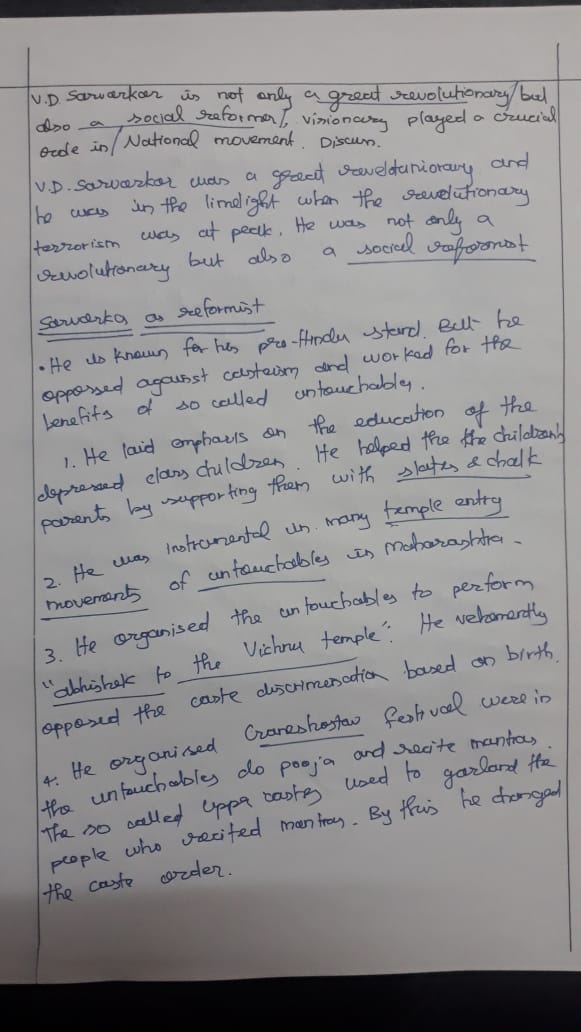 V.D. Sarvarkar is not only a great revolutionary/but
also a social reformer/, visionary played a crucial
orde in/National movement. Discuss.
V.D. Sarvarkar was a great reveldutniorary and
he was in the limelight when the revolutionary
terrorism was at peak. He was not only a
revolutionary but also a social reformist
Sarvarka as reformist
• He is known for his pro-Hindu stand. But he
oppossed against casteism and worked for the
benefits of so called untouchables.
1. He laid emphasis on the education of the
depressed class children. He helped the the children's
parents by supporting them with slates & chalk
2. He was instrumental in many temple entry
movements of untouchables in Maharashtra.
3. He organised the untouchables to perform
"abhishek to the Vishnu temple". He vehemently
opposed the caste discrimination based on birth.
4. He organised Ganeshostav festival were in
the untouchables do pooja and recite mantras.
The so called uppa castes used to garland the
people who recited mantras. By this he changed
the caste order.